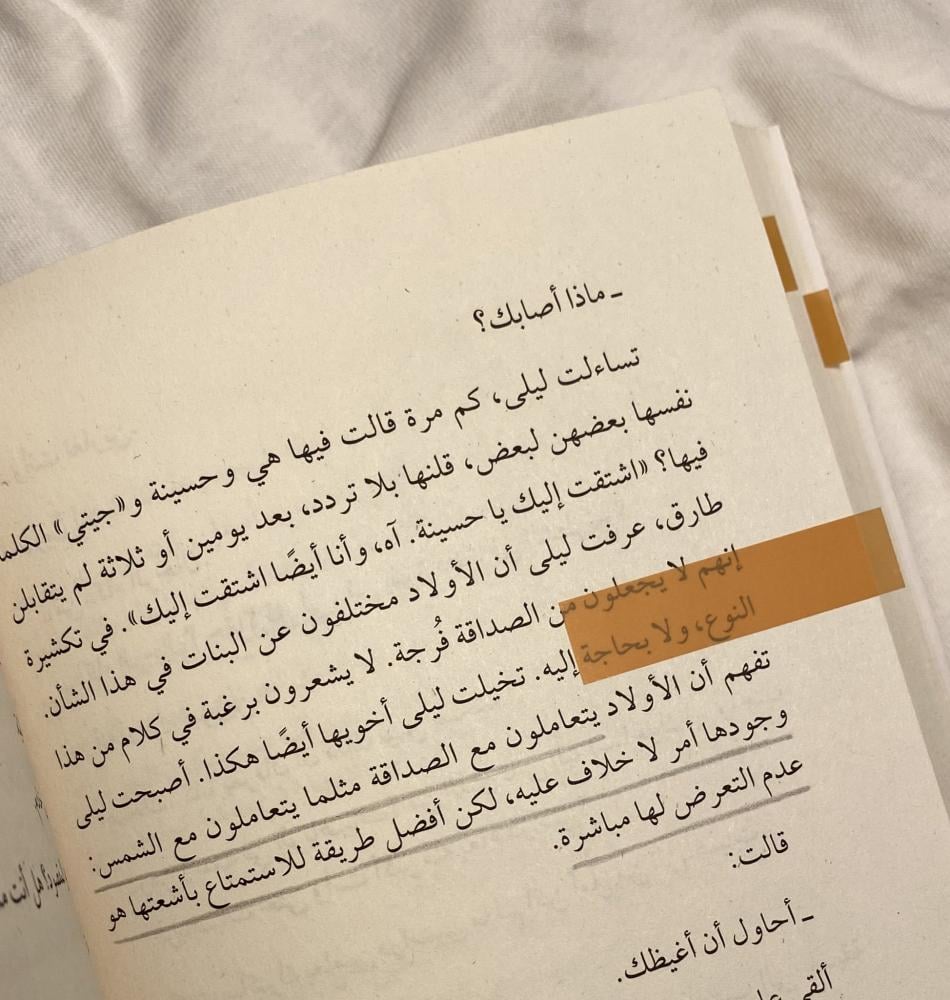 ـ ماذا أصابك؟
تساءلت ليلى، كم مرة قالت فيها هي وحسينة و«جيتي» الكلمات
نفسها بعضهن لبعض، قلنها بلا تردد، بعد يومين أو ثلاثة لم يتقابلن
فيها؟ «اشتقت إليك يا حسينة. آه، وأنا أيضًا اشتقت إليك». في تكشيرة
طارق، عرفت ليلى أن الأولاد مختلفون عن البنات في هذا الشأن.
إنهم لا يجعلون من الصداقة فُرجة. لا يشعرون برغبة في كلام من هذا
النوع، ولا بحاجة إليه. تخيلت ليلى أخويها أيضًا هكذا. أصبحت ليلى
تفهم أن الأولاد يتعاملون مع الصداقة مثلما يتعاملون مع الشمس:
وجودها أمر لا خلاف عليه، لكن أفضل طريقة للاستمتاع بأشعتها هو
عدم التعرض لها مباشرة.
قالت:
ـ أحاول أن أغيظك.
ألقى
هل أنت